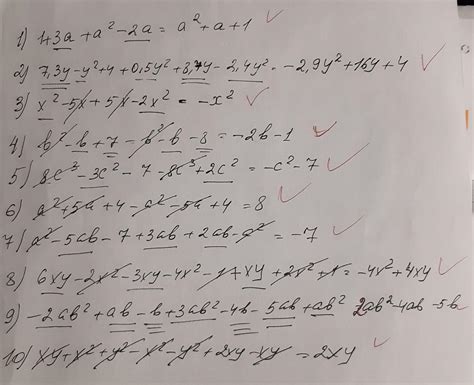 1) 1+3a+a²-2a= a²+a+1
2) 7,3y-y²+4+0,5y²+8,7y-2,4y²=-2,9y²+16y+4
3) x²-5x+5x-2x²=-x²
4) b²-b+7-b²-b-8=-2b-1
5) 8c³-3c²-7-8c³+2c²=-c²-7
6) a²+5a+4-a²-5a+4=8
7) a²-5ab-7+3ab+2ab-a²=-7
8) 6xy-2x²-3xy-4x²-1+xy+2x²+1=-4x²+4xy
9) -2ab²+ab-b+3ab²-4b-5ab+ab² 2ab²-4ab-5b
10) xy+x²+y²-x²-y²+2xy-xy=2xy